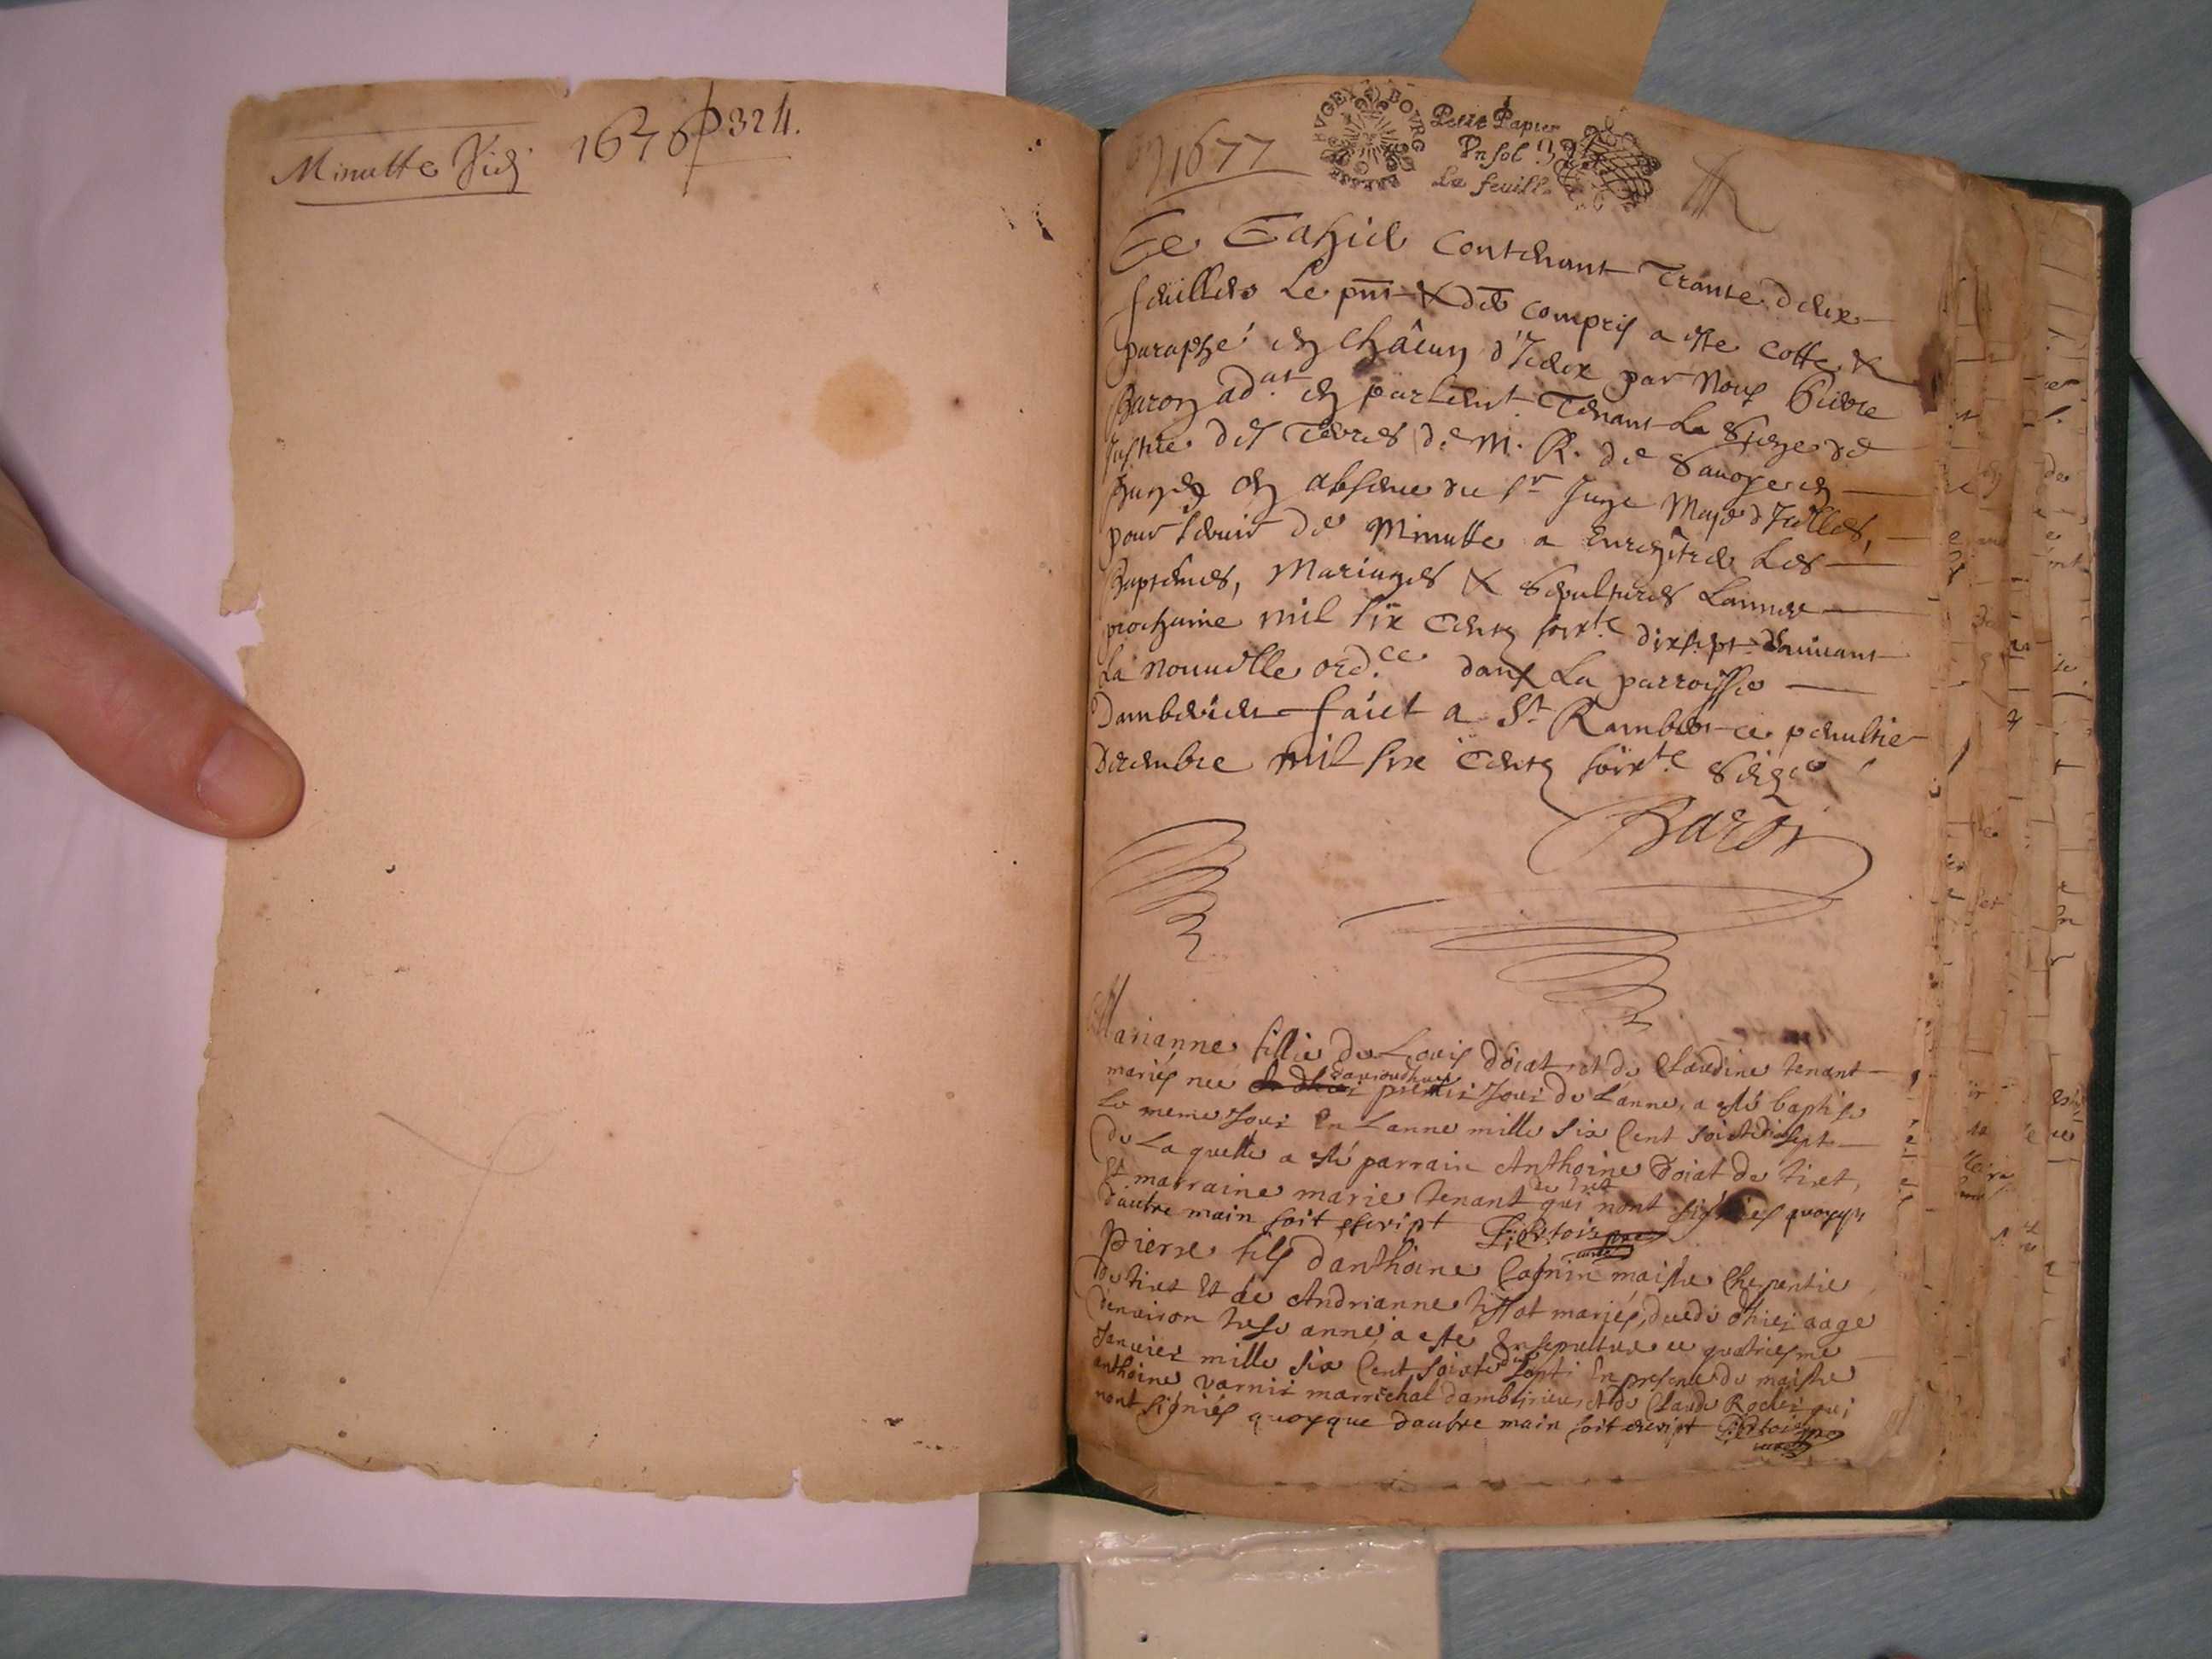 Minutte 1676 324.
1677
BVGEY BOVRG BRESSE
Petit Papier
Vn sol
La feuille
Ce Cahier contenant Trante deux
feuilles le pnt & der compris a este cotté &
paraphé en châcun d'Iceux par Nous Pierre
Baron adat en parlemt Tenant Le Siege de
Justice des Terres de M. R. de Sauoye en
Bugey en absence du sr Juge Maje d'Icelles,
pour seruir de Minutte a Enregistrer Les
Baptemes, Mariages & Sepultures Lannee
prochaine mil six Cents soixte dixsept suiuant
La nouuelle ordce dans La parroisse
Damberieu faict a St Rambert ce penultie
Decembre mil six Cents soixte Seize
Baron
Marianne fillie de Louis doiat et de Claudine tenant
mariés nee daujourdhuy premier Jour de Lanne, a esté baptise
le meme Jour En Lanne mille six Cent soictedixsept
De La quelle a esté parrain Anthoine Doiat de tiret,
Et marraine marie tenant du dict qui nont signés quoyque
dautre main soit escript
Pierre fils danthoine Cagnin maistre Cherpentie
de tiret Et de Andrianne tissot mariés, decedé dhier aage
denuiron trese anne, a este Ensepulture ce quatriesme
Januier mille six Cent soictedixsept En presence de maistre
anthoine varnie marrechal damberieu et de Claude Rodet qui
nont signés quoyque dautre main soit escript